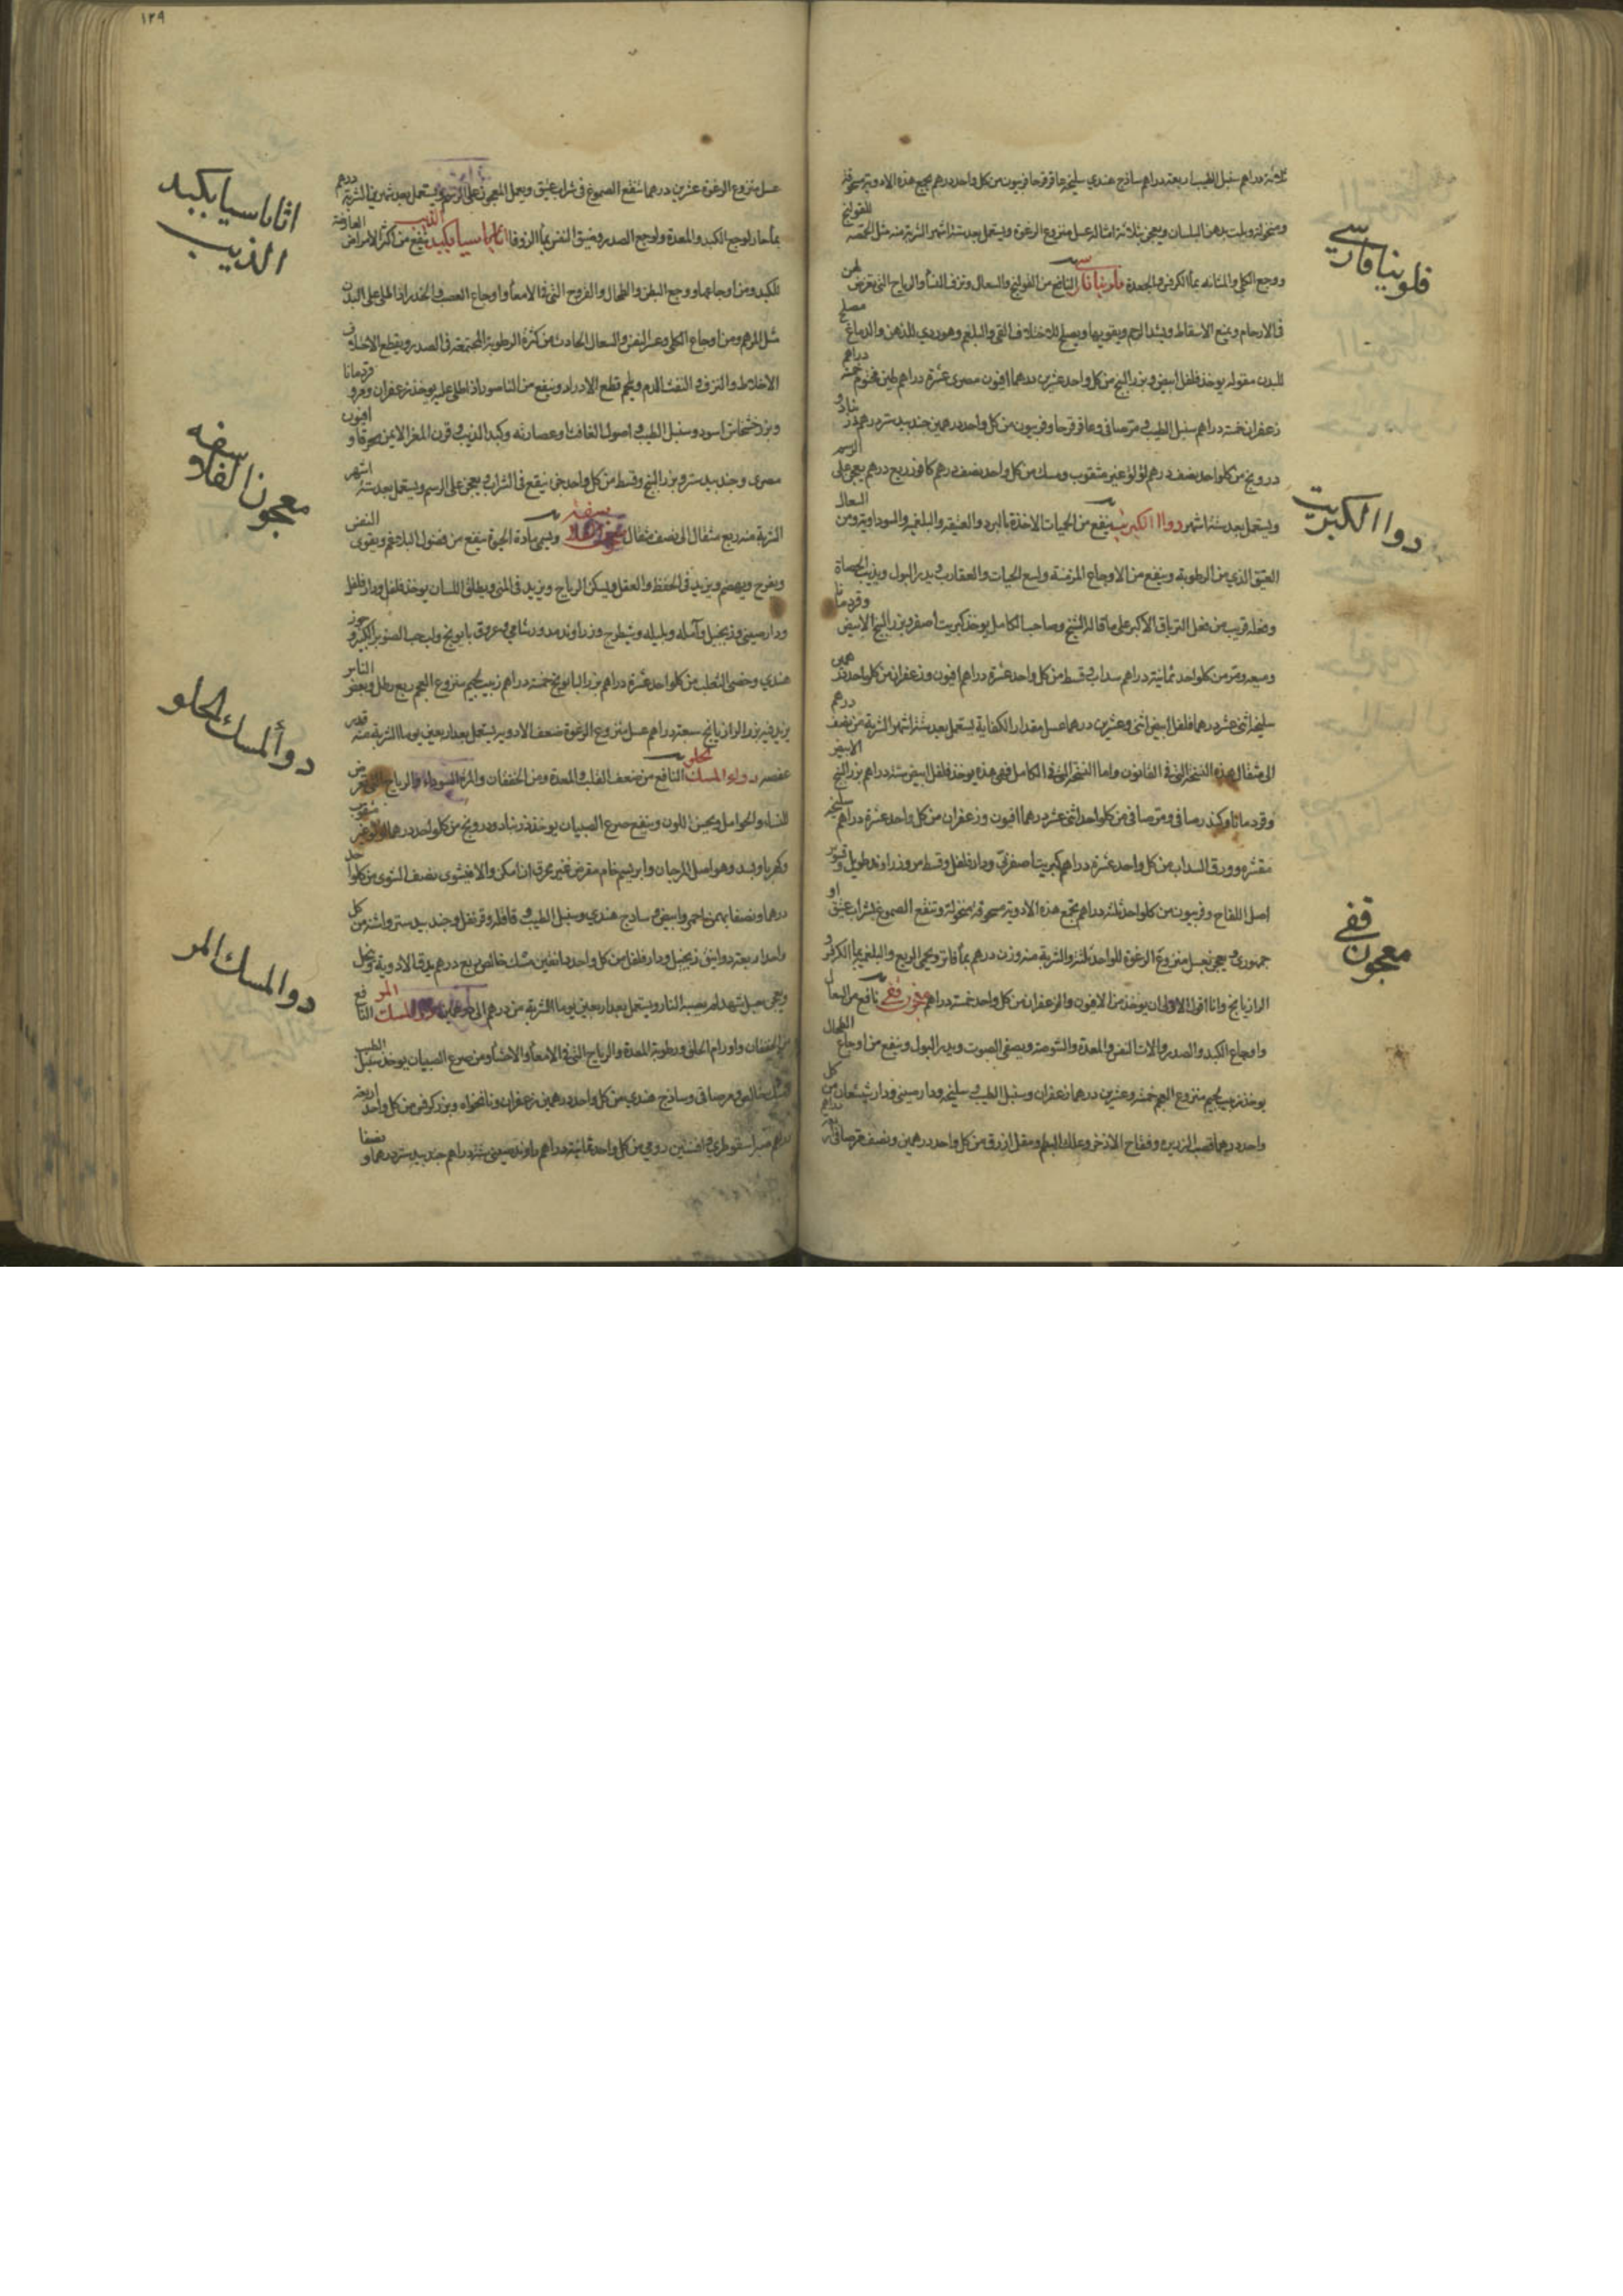 ثلاثة دراهم سنبل الطيب اربعة دراهم ساذج هندي سليخة عاقرقرحا فربيون من كل واحد درهم يجمع هذه الادوية مسحوقة
ومنخولة ويلت بدهن البلسان ويعجن بثلاثة امثاله عسل منزوع الرغوة ويستعمل بعد ستة اشهر الشربة منه مثل الحمصة للقولنج
ووجع الكلى والمثانة بماء الكرفس والجعدة فلونيا فارسي النافع من القولنج والسعال ونزف النساء والرياح التي تعرض لهن
في الارحام ويمنع الاسقاط ويشد الرحم ويقويها ويصلح لاختلاف القي والبلغم وهو ردي للذهن والدماغ مصلح
للبدن مقوله يوخذ فلفل ابيض وبزر البنج من كل واحد عشرين درهما افيون مصري عشرة دراهم طين مختوم خمسة دراهم
زعفران خمسة دراهم سنبل الطيب ومر صافي وعاقرقرحا وفربيون من كل واحد درهمين جندبيدستر درهم زرنباد و
درونج من كل واحد نصف درهم لولو غير مثقوب ومسك من كل واحد نصف درهم كافور ربع درهم يعجن على الرسم
ويستعمل بعد ستة اشهر دواا الكبريت ينفع من الحميات الاخذة بالبرد والعتيقة والبلغمية والسوداوية ومن السعال
العتيق الذي من الرطوبة وينفع من الاوجاع المزمنة ولسع الحيات والعقارب ويدر البول ويذيب الحصاة
وفعله قريب من فعل الترياق الاكبر على ما قاله الشيخ وصاحب الكامل يوخذ كبريت اصفر وبزر البنج الابيض وقردمانا
وميعة ومر من كل واحد ثمانية دراهم سداب وقسط من كل واحد عشرة دراهم افيون وزعفران من كل واحد درهمين
سليخة اثنى عشر درهما فلفل ابيض اثنى وعشرين درهما عسل مقدار الكفاية يستعمل بعد ستة اشهر الشربة من نصف درهم
الى مثقال هذه النسخة التي في القانون واما النسخة التي في الكامل فهي هذه يوخذ فلفل ابيض ستة دراهم بزر البنج الابيض
وقردمانا وكندر صافي ومر صافي من كل واحد اثنى عشر درهما افيون وزعفران من كل واحد عشرة دراهم سليخة
مقشرة وورق السداب من كل واحد عشرة دراهم كبريت اصفر ودارفلفل وقسط مر وزراوند طويل وقشور
اصل اللفاح وفربيون من كل واحد ثلثة دراهم يجمع هذه الادوية مسحوقة منخولة وتنقع الصموغ بشراب عتيق او
جمهوري ويعجن بعسل منزوع الرغوة للواحد ثلثة والشربة منه وزن درهم بماء فاتر وبحمى الربع والبلغمي بماء الكرفس و
الرازيانج وانا اقول الاولى ان يوخذ من الافيون والزعفران من كل واحد خمسة دراهم معجون قفي نافع من السعال
واوجاع الكبد والصدر والات النفس والمعدة والشوصة ويصفي الصوت ويدر البول وينفع من اوجاع الطحال
يوخذ زبيب لحيم منزوع العجم خمسة وعشرين درهما زعفران وسنبل الطيب سليخة ودارصيني ودارشيشعان من كل
واحد درهم قصب الذريرة وفقاح الاذخر وعلك البطم ومقل ازرق من كل واحد درهمين ونصف مر صافي دراهم
فلونيا فارسي
دواا لكبريت
معجون قفي
١٢٩
عسل منزوع الرغوة عشرين درهما تنقع الصموغ في شراب عتيق ويعمل المعجون على الرسم ويستعمل بعد شهرين الشربة درهم
بماء حار لوجع الكبد والمعدة ولوجع الصدر وضيق النفس بماء الزوفا اثاناسيا بكبد الذيب ينفع من اكثر الامراض العارضة
للكبد ومن اوجاعها ووجع البطن والطحال والقروح التي في الامعاء واوجاع العصب والخدر اذا طلي على البدن
مثل المرهم ومن اوجاع الكلى وعسر النفس والسعال الحادث من كثرة الرطوبة المجتمعة في الصدر ويقطع الاختلاف
الاخلاط والنزف والنفث الدم ويلحم قطع الادرار وينفع من الناصور اذا طلي عليه يوخذ زعفران ومر و قردمانا
وبزر خشخاش اسود وسنبل الطيب واصول الغافت او عصارته وكبد الذيب وقرن المعز الايمن محرقا و افيون
مصري وجندبيدستر وبزر البنج وقسط من كل واحد جزء ينقع في الشراب ويعجن على الرسم ويستعمل بعد ستة اشهر
الشربة منه ربع مثقال الى نصف مثقال معجون الفلاسفة ويسمى مادة الحيوة ينفع من فضول البلاغم ويقوى النفس
ويفرح ويهضم ويزيد في الحفظ والعقل ويسكن الرياح ويزيد في المني ويطلق اللسان يوخذ فلفل ودارفلفل
ودارصيني وزنجبيل وآمله وبليله وشيطرج وزراوند مدور شامي وعروق بابونج ولب حب الصنوبر الكبير و جوز
هندي وخصى الثعلب من كل واحد عشرة دراهم بزر البابونج خمسة دراهم زبيب لحيم منزوع العجم ربع رطل وبعض الناس
يزيد فيه بزر الرازيانج سبعة دراهم عسل منزوع الرغوة ضعف الادوية يستعمل بعد اربعين يوما الشربة منه قدر
عفصة دواء المسك الحلو النافع من ضعف القلب والمعدة ومن الخفقان والمرة السوداء والرياح التي تعرض
للنساء الحوامل ويحسن اللون وينفع صرع الصبيان يوخذ زرنباد ودرونج من كل واحد درهما لولو غير مثقوب
وكهربا وبسد وهو اصل المرجان وابريسم خام مقرض غير محرق ان امكن والا فيشوى نصف الشوى من كل واحد
درهما ونصفا بهمن احمر وابيض وساذج هندي وسنبل الطيب وقاقله وقرنفل وجندبيدستر واشنه من كل
واحد اربعة دوانيق زنجبيل ودارفلفل من كل واحد دانقين مسك خالص ربع درهم يدق الادوية وينخل
ويعجن بعسل شهد لم يصبه النار ويستعمل بعد اربعين يوما الشربة من درهم الى درهمين دواء المسك المر النافع
من الخفقان واورام الحلق ورطوبة المعدة والرياح التي في الامعاء والاحشاء ومن صرع الصبيان يوخذ سنبل الطيب
ومر صافي وساذج هندي من كل واحد درهمين زعفران ونانخواه وبزر كرفس من كل واحد اربعة
دراهم صبر اسقوطري وافسنتين رومي من كل واحد ثمانية دراهم راوند صيني ستة دراهم جندبيدستر درهما و نصفا
اثاناسيا بكبد
الذيب
معجون الفلاسفه
دوأ المسك الحلو
دوالمسك المر